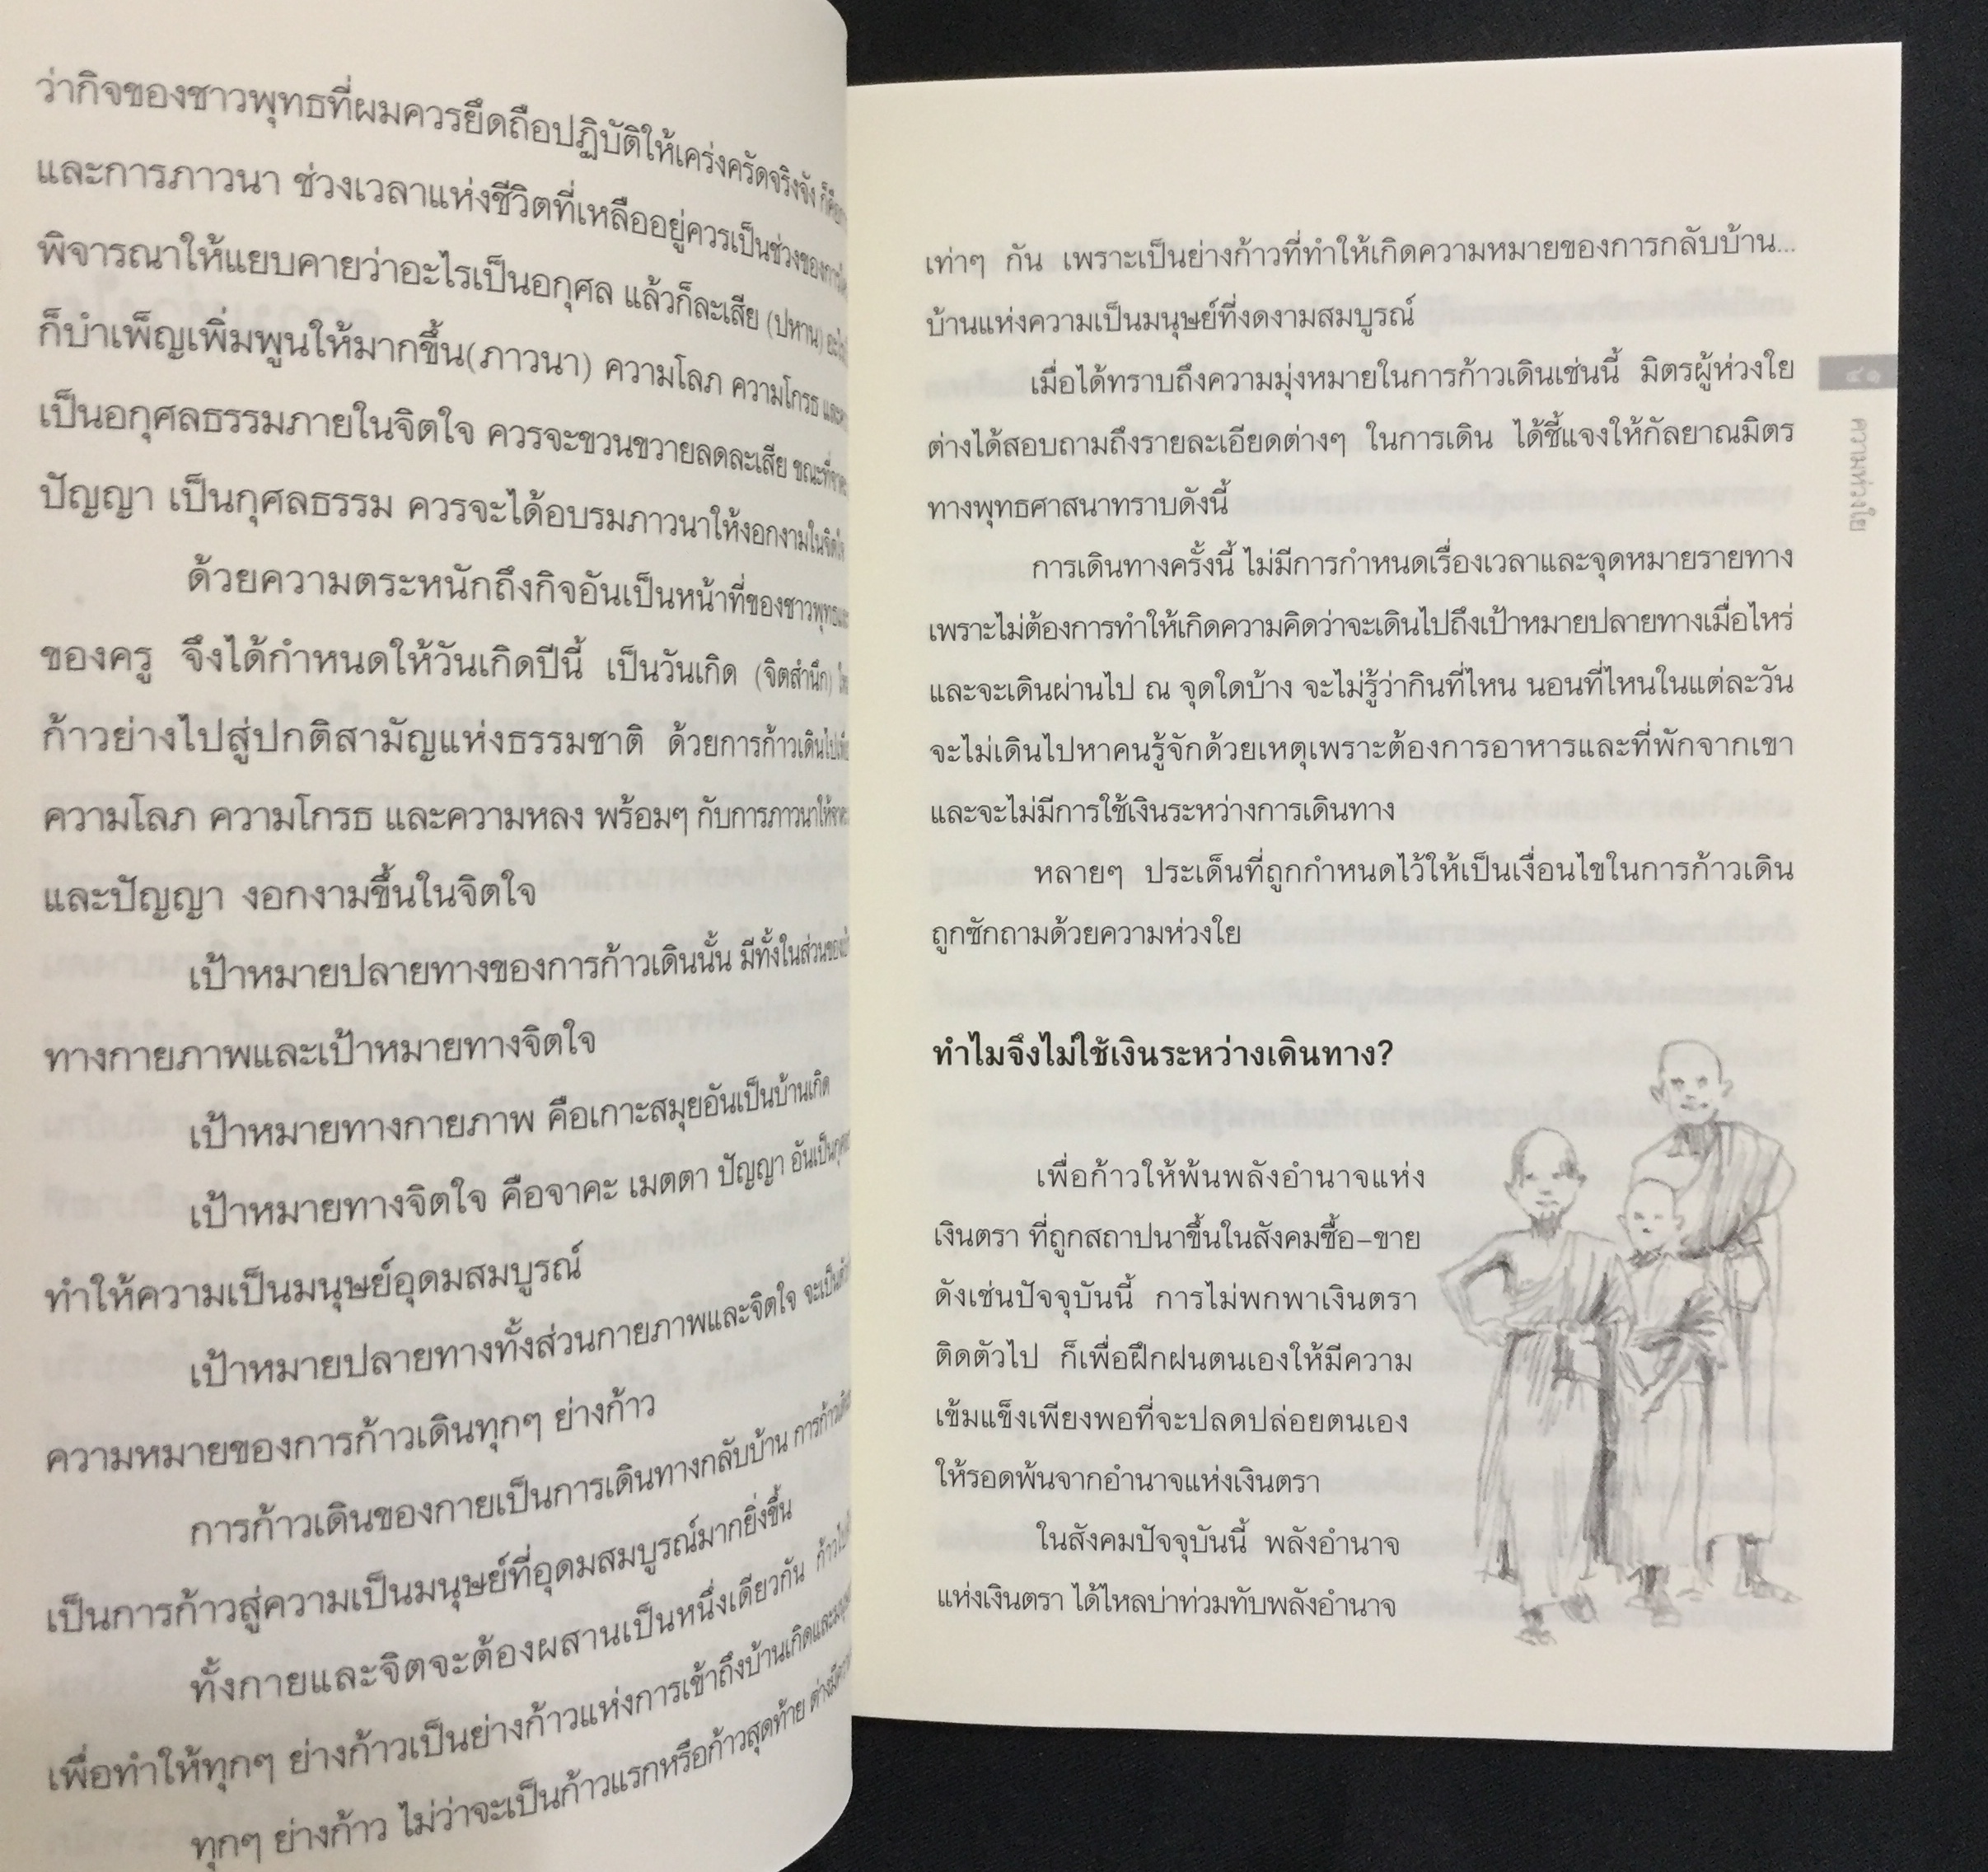 ว่ากิจของชาวพุทธที่ผมควรยึดถือปฏิบัติให้เคร่งครัดจริงจัง
และการภาวนา ช่วงเวลาแห่งชีวิตที่เหลืออยู่ควรเป็นช่วงของการ
พิจารณาให้แยบคายว่าอะไรเป็นอกุศล แล้วก็ละเสีย (ปหาน)
ก็บำเพ็ญเพิ่มพูนให้มากขึ้น(ภาวนา) ความโลภ ความโกรธ
เป็นอกุศลธรรมภายในจิตใจ ควรจะขวนขวายลดละเสีย
ปัญญา เป็นกุศลธรรม ควรจะได้อบรมภาวนาให้งอกงามในจิต
ด้วยความตระหนักถึงกิจอันเป็นหน้าที่ของชาวพุทธ
ของครู จึงได้กำหนดให้วันเกิดปีนี้ เป็นวันเกิด (จิตสำนึก)
ก้าวย่างไปสู่ปกติสามัญแห่งธรรมชาติ ด้วยการก้าวเดินไป
ความโลภ ความโกรธ และความหลง พร้อมๆ กับการภาวนาให้
และปัญญา งอกงามขึ้นในจิตใจ
เป้าหมายปลายทางของการก้าวเดินนั้น มีทั้งในส่วนของ
ทางกายภาพและเป้าหมายทางจิตใจ
เป้าหมายทางกายภาพ คือเกาะสมุยอันเป็นบ้านเกิด
เป้าหมายทางจิตใจ คือจาคะ เมตตา ปัญญา อันเป็น
ทำให้ความเป็นมนุษย์อุดมสมบูรณ์
เป้าหมายปลายทางทั้งส่วนกายภาพและจิตใจ จะเป็น
ความหมายของการก้าวเดินทุกๆ ย่างก้าว
การก้าวเดินของกายเป็นการเดินทางกลับบ้าน
เป็นการก้าวสู่ความเป็นมนุษย์ที่อุดมสมบูรณ์มากยิ่งขึ้น
ทั้งกายและจิตจะต้องผสานเป็นหนึ่งเดียวกัน
เพื่อทำให้ทุกๆ ย่างก้าวเป็นย่างก้าวแห่งการเข้าถึงบ้านเกิดและ
ทุกๆ ย่างก้าว ไม่ว่าจะเป็นก้าวแรกหรือก้าวสุดท้าย
เท่าๆ กัน เพราะเป็นย่างก้าวที่ทำให้เกิดความหมายของการกลับบ้าน...
บ้านแห่งความเป็นมนุษย์ที่งดงามสมบูรณ์
เมื่อได้ทราบถึงความมุ่งหมายในการก้าวเดินเช่นนี้ มิตรผู้ห่วงใย
ต่างได้สอบถามถึงรายละเอียดต่างๆ ในการเดิน ได้ชี้แจงให้กัลยาณมิตร
ทางพุทธศาสนาทราบดังนี้
การเดินทางครั้งนี้ ไม่มีการกำหนดเรื่องเวลาและจุดหมายรายทาง
เพราะไม่ต้องการทำให้เกิดความคิดว่าจะเดินไปถึงเป้าหมายปลายทางเมื่อไหร่
และจะเดินผ่านไป ณ จุดใดบ้าง จะไม่รู้ว่ากินที่ไหน นอนที่ไหนในแต่ละวัน
จะไม่เดินไปหาคนรู้จักด้วยเหตุเพราะต้องการอาหารและที่พักจากเขา
และจะไม่มีการใช้เงินระหว่างการเดินทาง
หลายๆ ประเด็นที่ถูกกำหนดไว้ให้เป็นเงื่อนไขในการก้าวเดิน
ถูกซักถามด้วยความห่วงใย
ทำไมจึงไม่ใช้เงินระหว่างเดินทาง?
เพื่อก้าวให้พ้นพลังอำนาจแห่ง
เงินตรา ที่ถูกสถาปนาขึ้นในสังคมซื้อ-ขาย
ดังเช่นปัจจุบันนี้ การไม่พกพาเงินตรา
ติดตัวไป ก็เพื่อฝึกฝนตนเองให้มีความ
เข้มแข็งเพียงพอที่จะปลดปล่อยตนเอง
ให้รอดพ้นจากอำนาจแห่งเงินตรา
ในสังคมปัจจุบันนี้ พลังอำนาจ
แห่งเงินตรา ได้ไหลบ่าท่วมทับพลังอำนาจ
ความห่วงใย